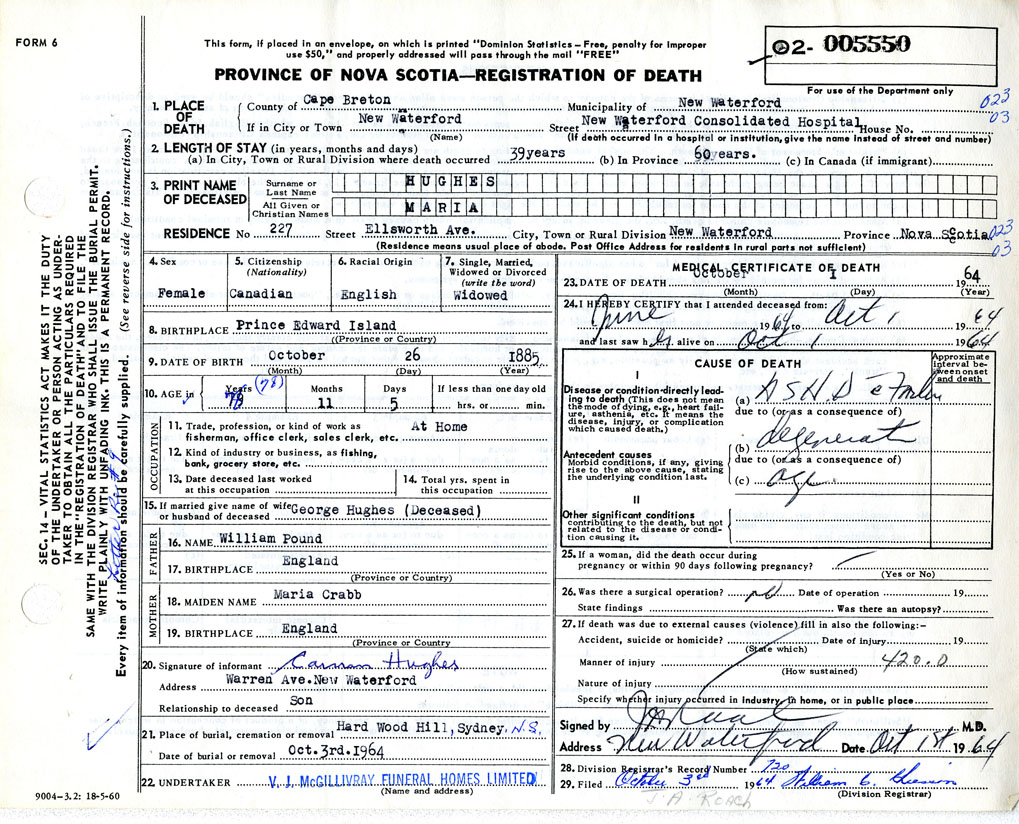 FORM 6
This form, if placed in an envelope, on which is printed "Dominion Statistics—Free, penalty for improper
use $50," and properly addressed will pass through the mail "FREE"
02- 005550
For use of the Department only
PROVINCE OF NOVA SCOTIA—REGISTRATION OF DEATH
023
03
1. PLACE OF DEATH
County of Cape Breton Municipality of New Waterford
If in City or Town New Waterford Street New Waterford Consolidated Hospital House No.
(Name) (If death occurred in a hospital or institution, give the name instead of street and number)
2. LENGTH OF STAY (in years, months and days)
(a) In City, Town or Rural Division where death occurred 39years (b) In Province 60years. (c) In Canada (if immigrant)
3. PRINT NAME OF DECEASED
Surname or Last Name HUGHES
All Given or Christian Names MARIA
RESIDENCE No 227 Street Ellsworth Ave. City, Town or Rural Division New Waterford Province Nova Scotia
023
03
(Residence means usual place of abode. Post Office Address for residents in rural parts not sufficient)
4. Sex
Female
5. Citizenship
(Nationality)
Canadian
6. Racial Origin
English
7. Single, Married,
Widowed or Divorced
(write the word)
Widowed
8. BIRTHPLACE Prince Edward Island
(Province or Country)
9. DATE OF BIRTH October 26 1885
(Month) (Day) (Year)
10. AGE in Years (78) Months 11 Days 5 If less than one day old
hrs. or min.
OCCUPATION
11. Trade, profession, or kind of work as At Home
fisherman, office clerk, sales clerk, etc.
12. Kind of industry or business, as fishing,
bank, grocery store, etc.
13. Date deceased last worked
at this occupation
14. Total yrs. spent in
this occupation
15. If married give name of wife George Hughes (Deceased)
or husband of deceased
FATHER
16. NAME William Pound
17. BIRTHPLACE England
(Province or Country)
MOTHER
18. MAIDEN NAME Maria Crabb
19. BIRTHPLACE England
(Province or Country
20. Signature of informant Carman Hughes
Address Warren Ave.New Waterford
Relationship to deceased Son
21. Place of burial, cremation or removal Hard Wood Hill,Sydney. N.S.
Date of burial or removal Oct.3rd.1964
22. UNDERTAKER V. J. McGILLIVRAY FUNERAL HOMES LIMITED
(Name and address)
MEDICAL CERTIFICATE OF DEATH
23. DATE OF DEATH October 1 1964
(Month) (Day) (Year)
24. I HEREBY CERTIFY that I attended deceased from:
June 1964 to Oct 1 1964
and last saw h er alive on Oct 1 1964
CAUSE OF DEATH
Approximate
interval be-
tween onset
and death
I
Disease or condition directly lead-
ing to death (This does not mean
the mode of dying, e.g., heart fail-
ure, asthenia, etc. It means the
disease, injury, or complication
which caused death.)
(a) ASHD
due to (or as a consequence of)
Antecedent causes
Morbid conditions, if any, giving
rise to the above cause, stating
the underlying condition last.
(b)
due to (or as a consequence of)
(c) age
II
Other significant conditions
contributing to the death, but not
related to the disease or condi-
tion causing it.
25. If a woman, did the death occur during
pregnancy or within 90 days following pregnancy?
(Yes or No)
26. Was there a surgical operation? no Date of operation 19
State findings Was there an autopsy?
27. If death was due to external causes (violence) fill in also the following:-
Accident, suicide or homicide? Date of injury 19
(State which)
Manner of injury 420.0
(How sustained)
Nature of injury
Specify whether injury occurred in industry, in home, or in public place
Signed by M.D.
Address New Waterford Date Oct 1st 1964
28. Division Registrar's Record Number 720
29. Filed October 3rd 1964 William C.
(Division Registrar)
J A. ROACH
SEC. 14— VITAL STATISTICS ACT MAKES IT THE DUTY
OF THE UNDERTAKER OR PERSON ACTING AS UNDER-
TAKER TO OBTAIN ALL THE PARTICULARS REQUIRED
IN THE "REGISTRATION OF DEATH" AND TO FILE THE
SAME WITH THE DIVISION REGISTRAR WHO SHALL ISSUE THE BURIAL PERMIT.
WRITE PLAINLY WITH UNFADING INK. THIS IS A PERMANENT RECORD.
Every item of information should be carefully supplied. (See reverse side for instructions.)
9004—3.2: 18-5-60